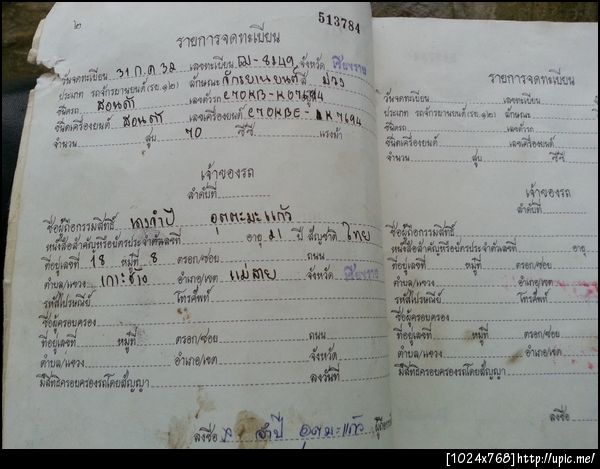 ๒
513784
รายการจดทะเบียน
วันจดทะเบียน 31 ก.ค 32 เลขทะเบียน 8149 จังหวัด เชียงราย
ประเภท รถจักรยานยนต์(รย.๑๒) ลักษณะ จักรยานยนต์ สี ม่วง
ชนิดรถ ฮอนด้า เลขตัวรถ
ชนิดเครื่องยนต์ ฮอนด้า เลขเครื่องยนต์
จำนวน สูบ 70 ซีซี แรงม้า
เจ้าของรถ
ลำดับที่
ชื่อผู้ถือกรรมสิทธิ์ อุตตะมะแก้ว
หนังสือสำคัญหรือบัตรประจำตัวเลขที่ อายุ 21 ปี สัญชาติ ไทย
ที่อยู่เลขที่ 18 หมู่ที่ 8 ตรอก/ซอย ถนน
ตำบล/แขวง เกาะช้าง อำเภอ/เขต แม่สาย จังหวัด เชียงราย
รหัสไปรษณีย์ โทรศัพท์
ชื่อผู้ครอบครอง
ที่อยู่เลขที่ หมู่ที่ ตรอก/ซอย ถนน
ตำบล/แขวง อำเภอ/เขต จังหวัด
มีสิทธิครอบครองรถโดยสัญญา ลงวันที่
ลงชื่อ
รายการจดทะเบียน
วันจดทะเบียน เลขทะเบียน
ประเภท รถจักรยานยนต์(รย.๑๒) ลักษณะ
ชนิดรถ เลขตัวรถ
ชนิดเครื่องยนต์ เลขเครื่องยนต์
จำนวน สูบ ซีซี
เจ้าของรถ
ลำดับที่
ชื่อผู้ถือกรรมสิทธิ์
หนังสือสำคัญหรือบัตรประจำตัวเลขที่ อายุ
ที่อยู่เลขที่ หมู่ที่ ตรอก/ซอย
ตำบล/แขวง อำเภอ/เขต
รหัสไปรษณีย์ โทรศัพท์
ชื่อผู้ครอบครอง
ที่อยู่เลขที่ หมู่ที่ ตรอก/ซอย
ตำบล/แขวง อำเภอ/เขต
มีสิทธิครอบครองรถโดยสัญญา
ลงชื่อ
[1024x768]http://upic.me/